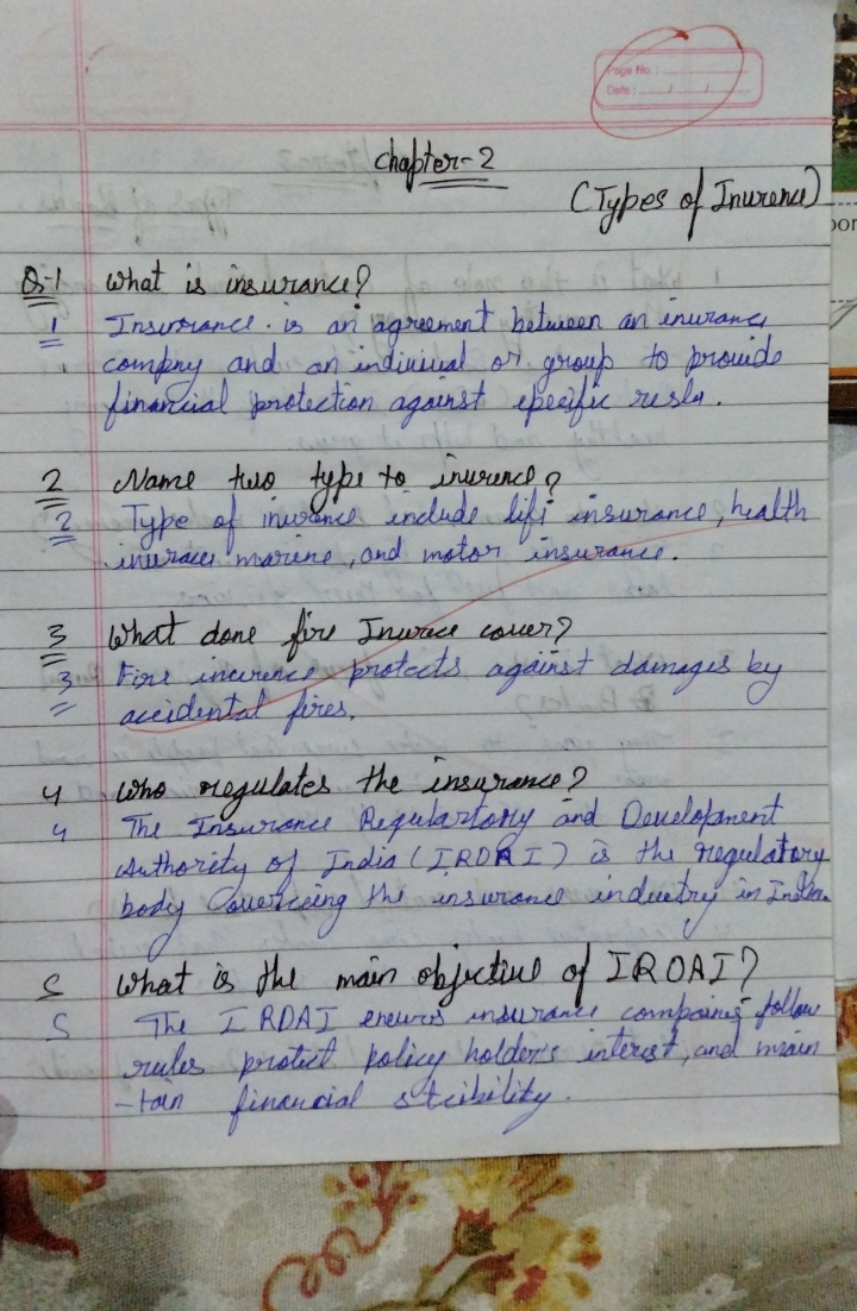 Page No.:
Date: / /
Chapter-2
(Types of Inurence)
Q-1 What is insurance?
1 Insurance is an agreement between an inurance
compny and an indiviual or group to provide
financial protection against specific
2 Name two type to inurence?
2 Type of inurance include life insurance, health
marine, and motor insurance.
3 What done fire Inurece cover?
3 Fire incurence protects against damages by
accidental fires.
4 Who regulates the insurance?
4 The Insurance Regulartory and Development
Authority of India (IRDAI) is the regulatory
body the insurance industry in India.
5 What is the main objective of IRDAI?
5 The IRDAI insurance follow
rules protect policy holder's interest, and main
-tain financial